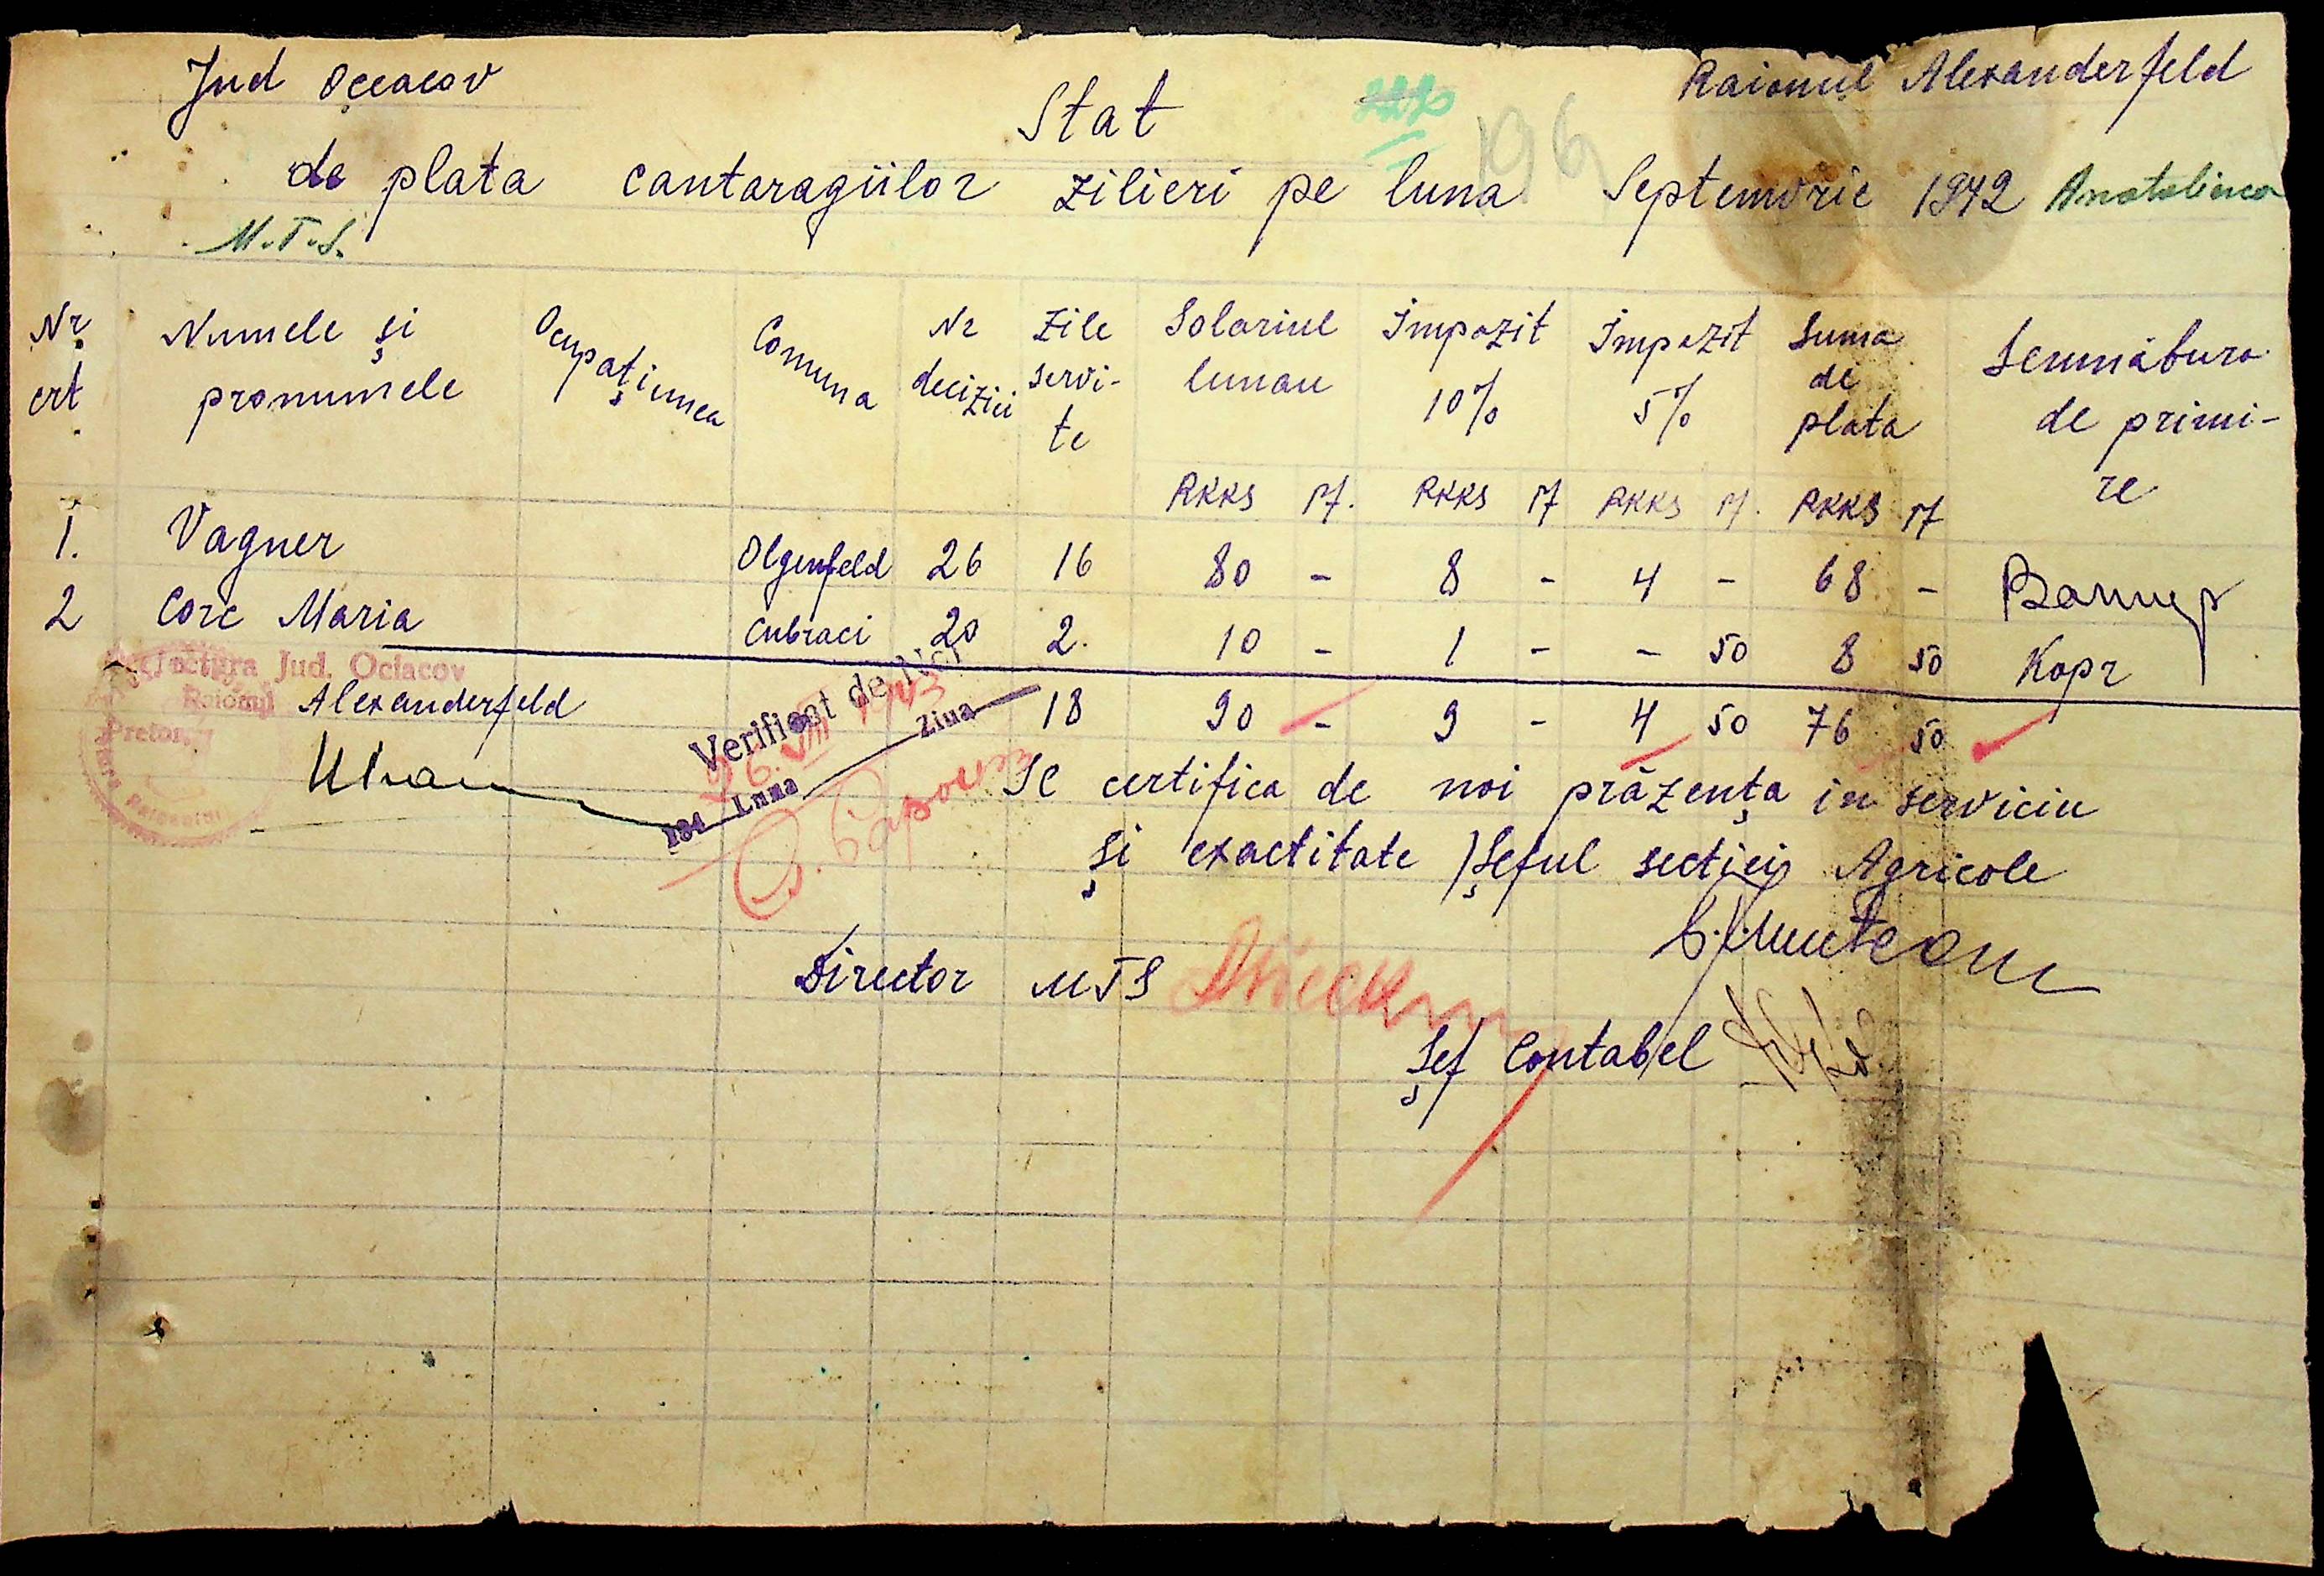 Jud Oceacov
Raionul Alexanderfeld
Stat
196
de plata cantaragiilor zilieri pe luna Septemvrie 1942 Anatolievca
M.T.S.
Nr crt. Numele și pronumele Ocupațiunea Comuna Nr deciziei Zile servi-te Solariul lunau Impozit 10% Impozit 5% Suma de plata Semnătura de primi-re
RKKS Pf. RKKS Pf RKKS Pf. RKKS Pf
1. Vagner Olgenfeld 26 16 80 - 8 - 4 - 68 - Вагнер
2 Corc Maria Cubraci 20 2. 10 - 1 - - 50 8 50 Корг
18 90 - 9 - 4 50 76 50
Prefectura Jud. Ociacov
Raionul Alexanderfeld
Pretor,
Verificat de Noi
26.VIII 1943
194 Luna Ziua
Se certifica de noi prăzența in serviciu
și exactitate Șeful secției Agricole
Munteanu
Director MTS
Șef Contabel